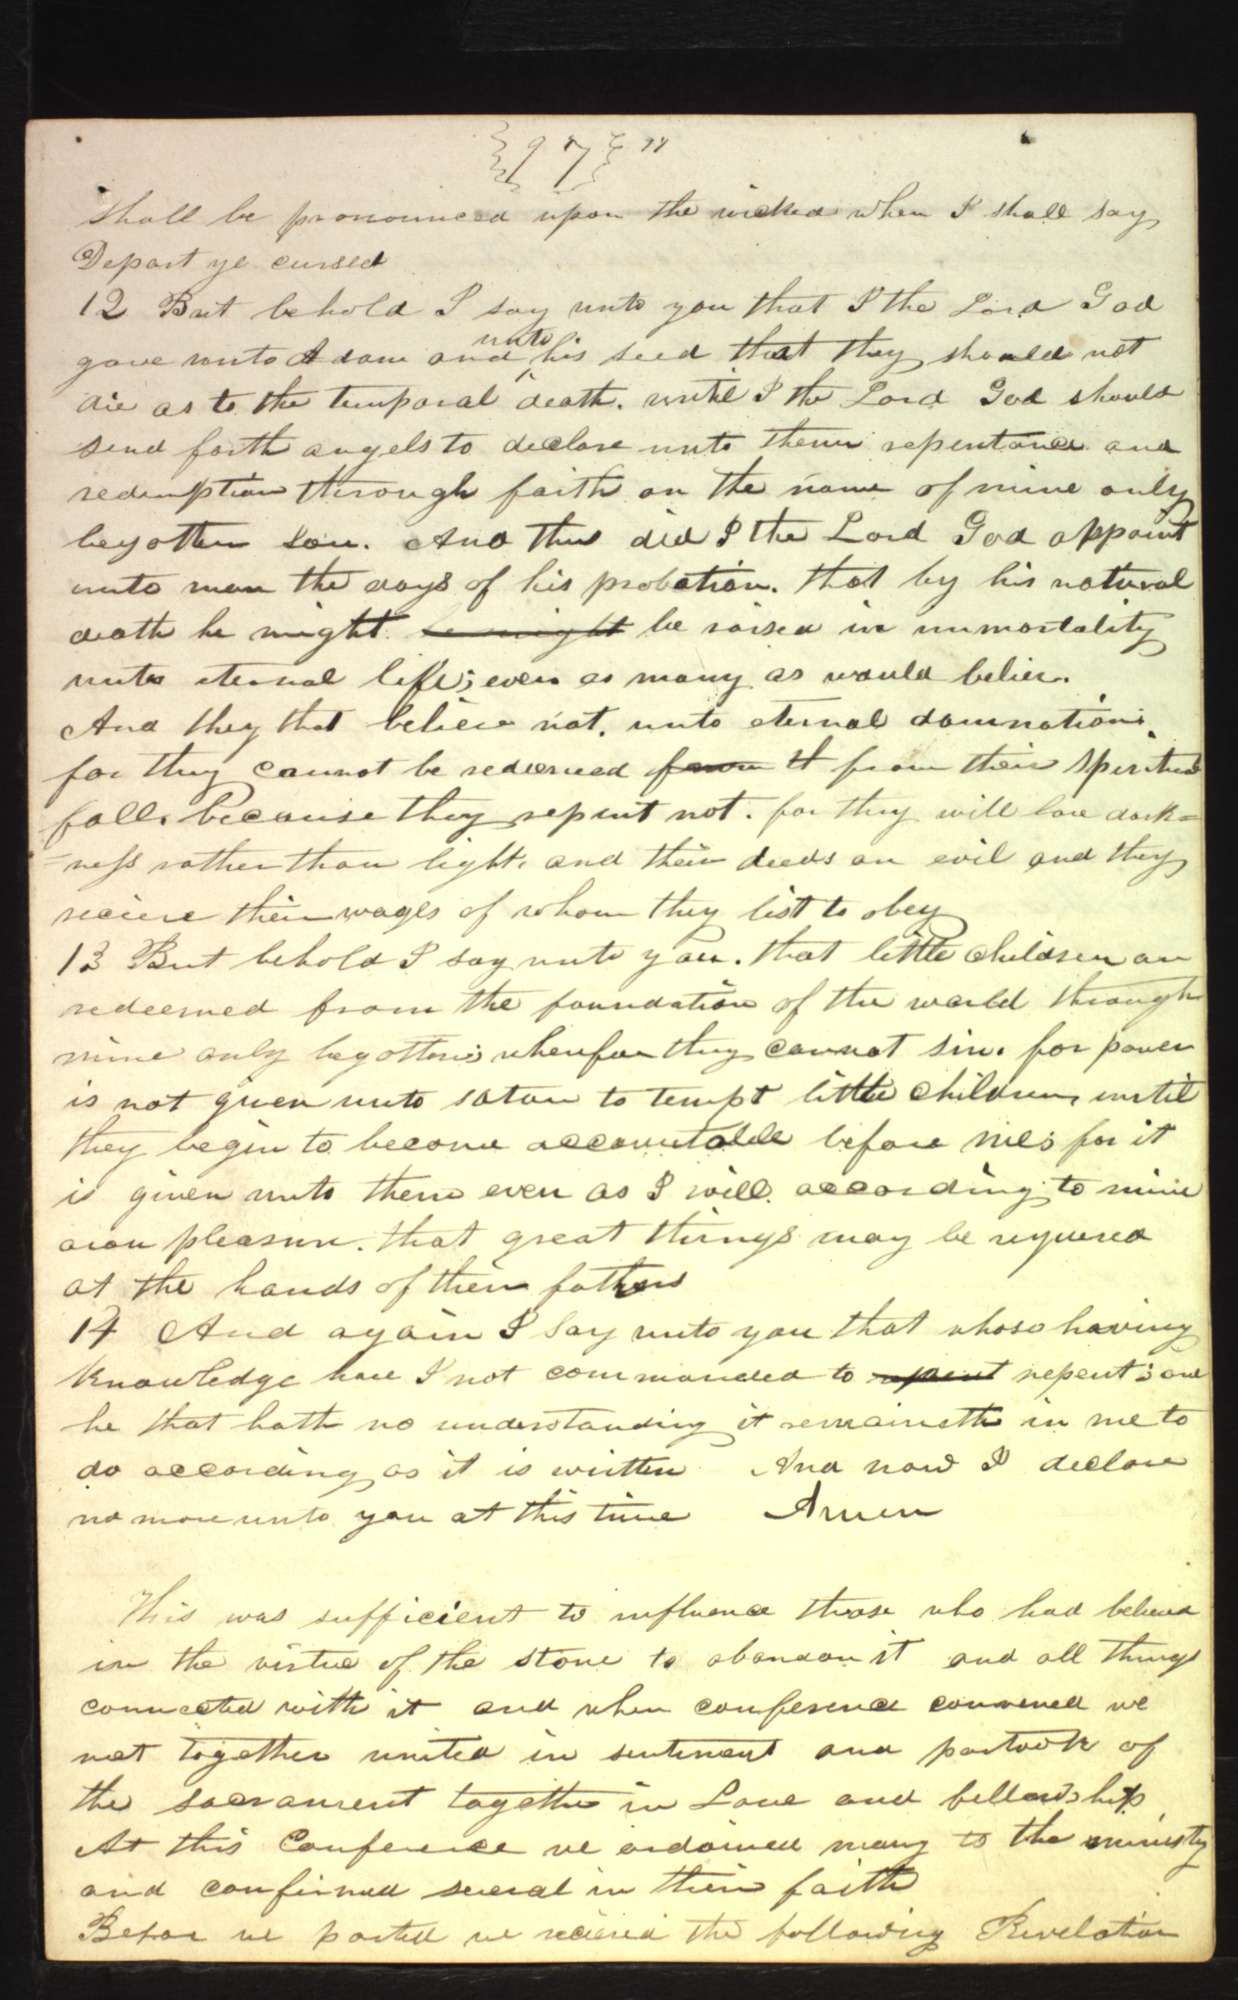 {97} "
shall be pronounced upon the wicked when I shall say
Depart ye cursed
12 But behold I say unto you that I the Lord God
gave unto Adam and unto his seed that they should not
die as to the temporal death. until I the Lord God should
send forth angels to declare unto them repentance and
redemption through faith on the name of mine only
begotten son. And thus did I the Lord God appoint
unto man the days of his probation. that by his natural
death he might he might be raised in immortality
unto eternal life; even as many as would believe.
And they that believe not, unto eternal damnation;
for they cannot be redeemed from it from their spiritual
fall. because they repent not. for they will love dark=
=ness rather than light. and their deeds are evil and they
recieve their wages of whom they list to obey
13 But behold I say unto you. that little children are
redeemed from the foundation of the world through
mine only begotten; wherefore they cannot sin. for power
is not given unto satan to tempt little children, until
they begin to become accountable before me; for it
is given unto them even as I will. according to mine
own pleasure. that great things may be required
at the hands of their fathers
14 And again I say unto you that whoso having
knowledge have I not commanded to repent repent; and
he that hath no understanding it remaineth in me to
do according as it is written And now I declare
no more unto you at this time Amen
This was sufficient to influence those who had believed
in the virtue of the stone to abandon it and all things
connected with it and when conference convened we
met together united in sentiment and partook of
the sacrament together in Love and fellowship
At this Conference we ordained many to the ministy
and confirmed several in their faith
Before we parted we recieved the following Revelation